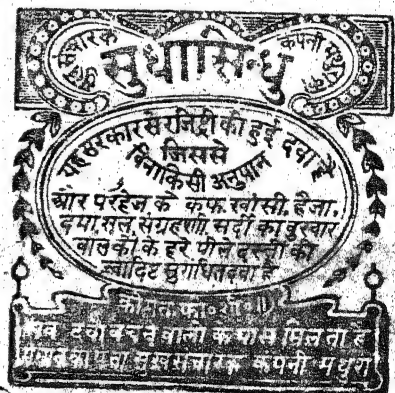 सुख संचारक कंपनी मथुरा का
सुधासिन्धु
यह सरकार से रजिष्ट्री की हुई दवा है
जिससे
बिना किसी अनुपान
और परहेज के कफ, खांसी, हैजा,
दमा, सूल, संग्रहणी, सर्दी का बुखार
बालकों के हरे पीले दस्तों की
स्वादिष्ट सुगंधित दवा है
कीमत फी
सब दवा बेचने वालों के पास मिलता है
पता सुखसंचारक कंपनी मथुरा